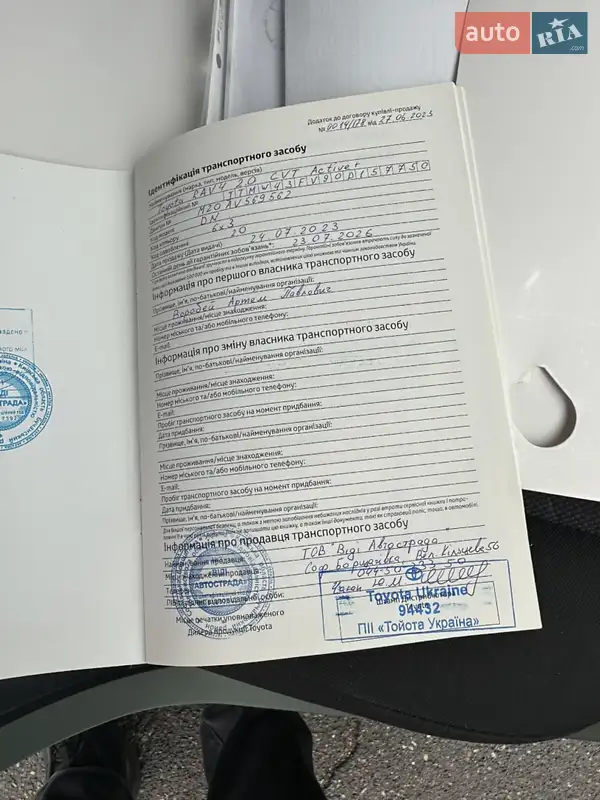 auto RIA .com
Додаток до договору купівлі-продажу
№ 0014178 від 27.06.2023
Ідентифікація транспортного засобу
Найменування (марка, тип, модель, версія)
Toyota RAV4 2.0 CVT Active+
Ідентифікаційний №
Двигун № M20AV569562
Код моделі DN
Код кольору 6x3
Код оздоблення 20
Дата продажу (Дата видачі) 24.07.2023
Останній день дії гарантійних зобов'язань*: 23.07.2026
Інформація про першого власника транспортного засобу
Прізвище, ім'я, по-батькові/найменування організації:
Воробей Артем Павлович
Місце проживання/місце знаходження:
Номер міського та/або мобільного телефону:
E-mail:
Інформація про зміну власника транспортного засобу
Прізвище, ім'я, по-батькові/найменування організації:
Місце проживання/місце знаходження:
Номер міського та/або мобільного телефону:
E-mail:
Пробіг транспортного засобу на момент придбання:
Дата придбання:
Прізвище, ім'я, по-батькові/найменування організації:
Місце проживання/місце знаходження:
Номер міського та/або мобільного телефону:
E-mail:
Пробіг транспортного засобу на момент придбання:
Дата придбання:
Прізвище, ім'я, по-батькові/найменування організації:
Інформація про продавця транспортного засобу
Найменування продавця: ТОВ "Віді Автострада"
Місце знаходження продавця: Соф. Борщагівка, Вул. Кільцева 56
відповідальної особи:
Місце печатки уповноваженого
Дилера продукції Toyota
ВІДІ
АВТОСТРАДА
Toyota Ukraine
94432
ПІІ «Тойота Україна»